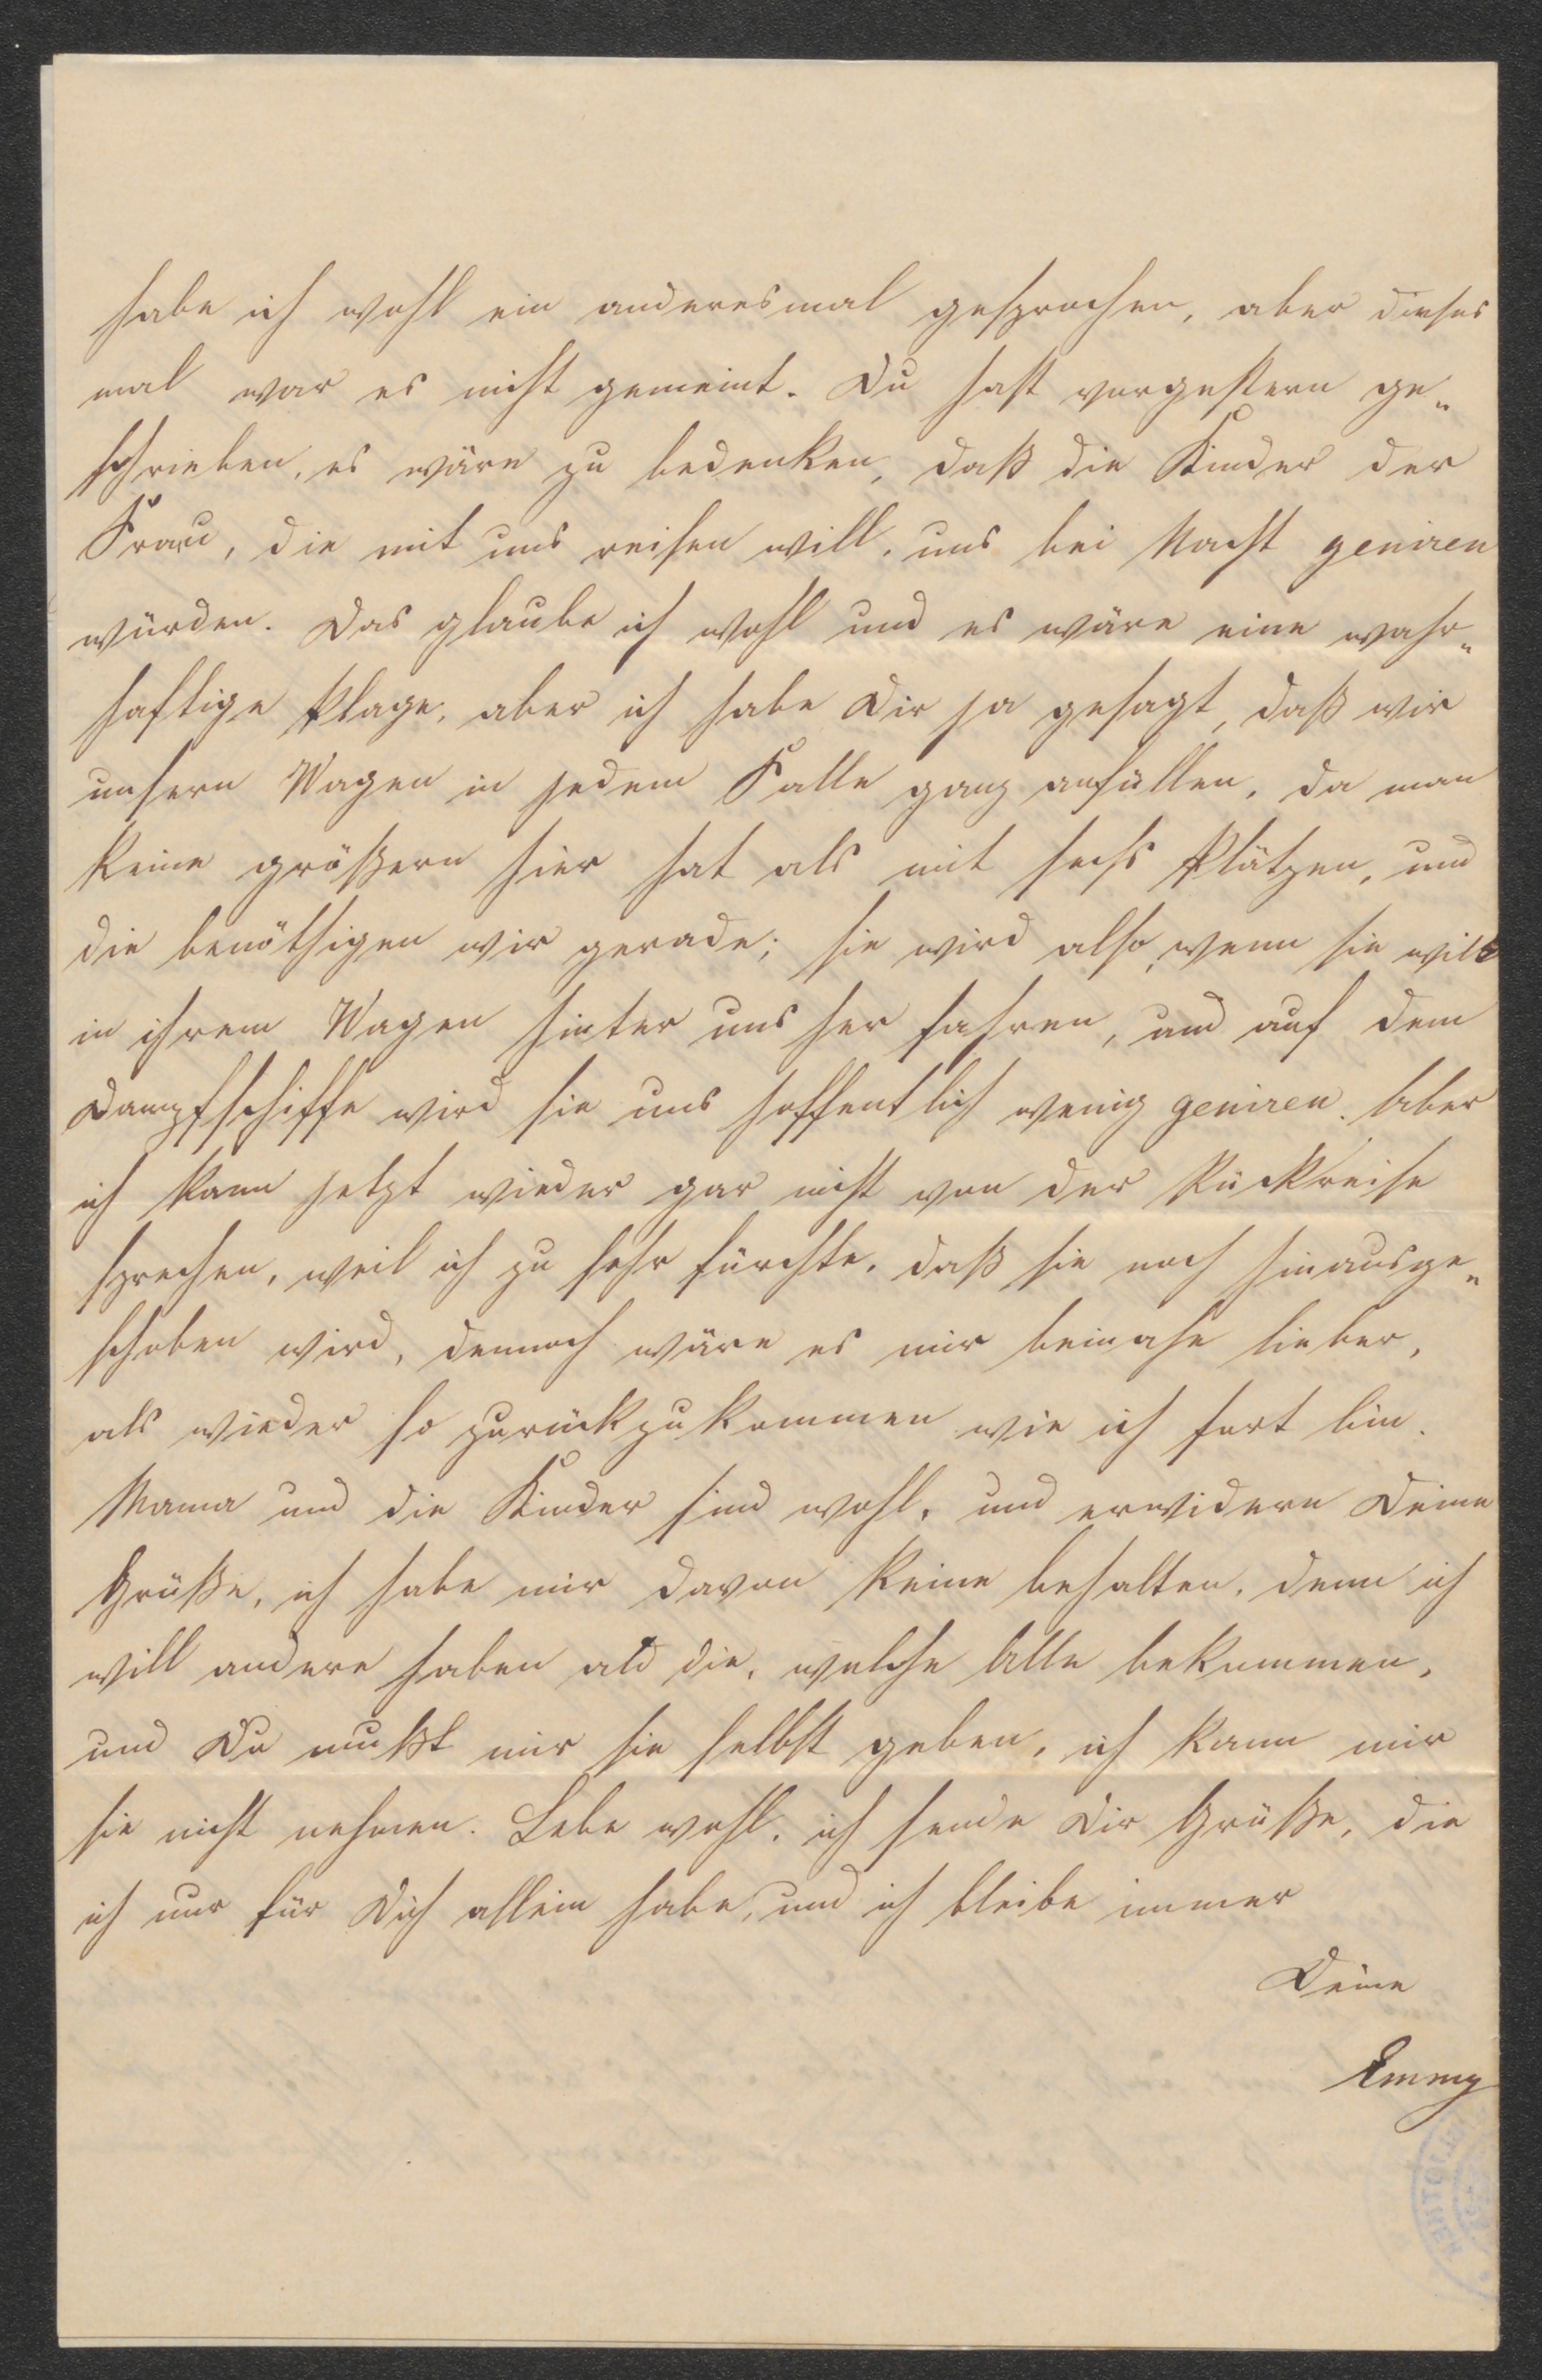 habe ich wohl ein anderesmal gesprochen, aber dieses
mal war es nicht gemeint. Du hast vorgestern ge„
schrieben, es wäre zu bedenken, daß die Kinder der
Frau, die mit uns reisen will, uns bei Nacht geniren
würden. Das glaube ich wohl und es wäre eine wahr„
haftige Plage, aber ich habe Dir ja gesagt, daß wir
unsern Wagen in jedem Falle ganz anfüllen, da man
keine größern hier hat als mit sechs Plätzen, und
die benöthigen wir gerade; sie wird also, wenn sie will
in ihrem Wagen hinter uns her fahren, und auf dem
Dampfschiffe wird sie uns hoffentlich wenig geniren. Aber
ich kann jetzt wieder gar nicht von der Rückreise
sprechen, weil ich zu sehr fürchte, daß sie noch hinausge„
schoben wird, dennoch wäre es mir beinahe lieber,
als wieder so zurückzukommen wie ich fort bin.
Mama und die Kinder sind wohl, und erwidern Deine
Grüße, ich habe mir davon keine behalten, denn ich
will andere haben als die, welche Alle bekommen,
und Du mußt mir sie selbst geben, ich kann mir
sie nicht nehmen. Lebe wohl, ich sende Dir Grüße, die
ich nur für Dich allein habe, und ich bleibe immer
Deine
Emmy